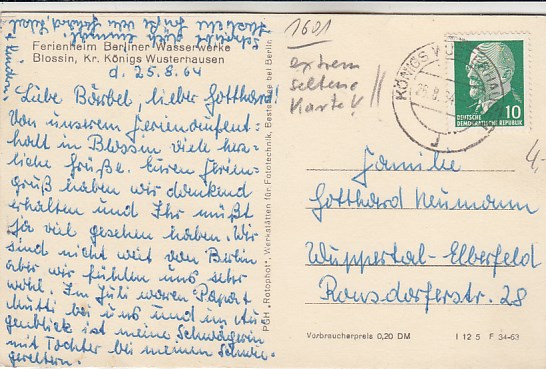 Ferienheim Berliner Wasserwerke
Blossin, Kr. Königs Wusterhausen
d. 25.8.64
Liebe Bärbel, lieber Gotthard!
Von unserem Ferienaufent-
halt in Blossin viele herz-
liche Grüße. Euren Ferien-
gruß haben wir dankend
erhalten und Ihr müßt
ja viel gesehen haben. Wir
sind nicht weit von Berlin
aber wir fühlen uns sehr
wohl. Im Juli waren Papa +
Mutti bei uns und im Au-
genblick ist meine Schwägerin
mit Tochter bei meinen Schwie-
gereltern.
Schreibt doch einmal.
Herzliche Grüße von
1601
extrem
seltene
Karte!
KÖNIGS WUSTERHAUSEN
DEUTSCHE
DEMOKRATISCHE REPUBLIK
10
4,-
Familie
Gotthard Neumann
Wuppertal-Elberfeld
Ronsdorferstr. 28
PGH „Rotophot", Werkstätten für Fototechnik, Bestensee bei Berlin
Verbraucherpreis 0,20 DM
I 12 5 F 34-63